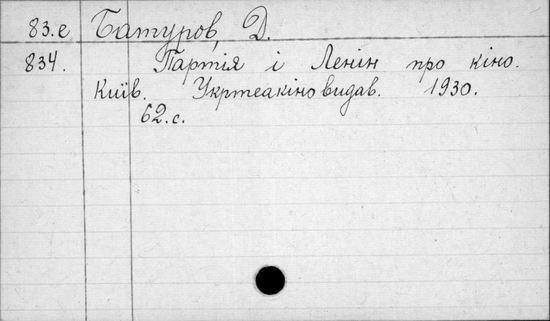 83.е Батуров, Д.
834. Партія і Ленін про кіно.
Київ. Укртеакіновидав. 1930.
62.с.